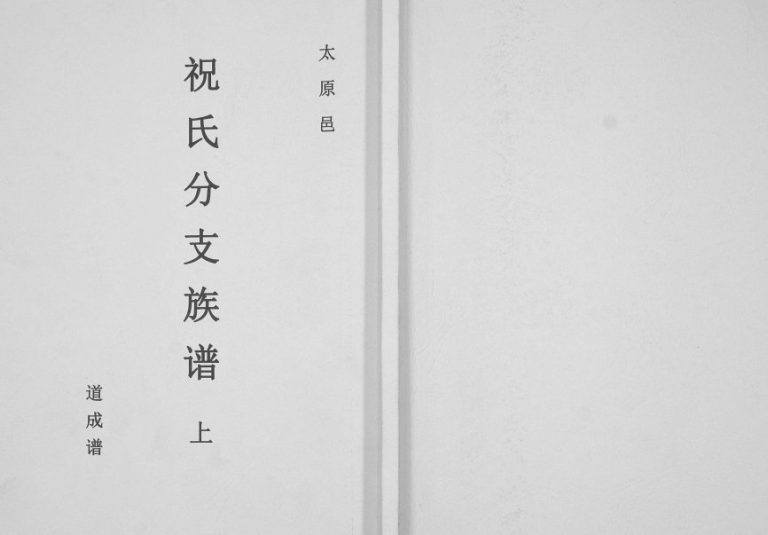 太原邑
祝氏分支族谱 上
道成谱